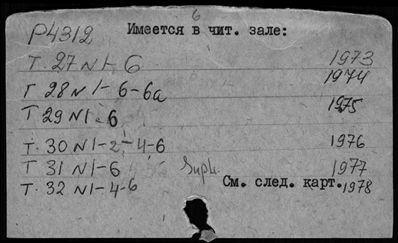 6
Р4312 Имеется в чит. зале:
Т. 27 N 1-6 1973
Т 28 N 1-6-6а 1974
Т 29 N 1-6 1975
Т. 30 N 1-2-4-6 1976
Т 31 N 1-6 Supl. 1977
Т. 32 N 1-4-6 См. след. карт. 1978